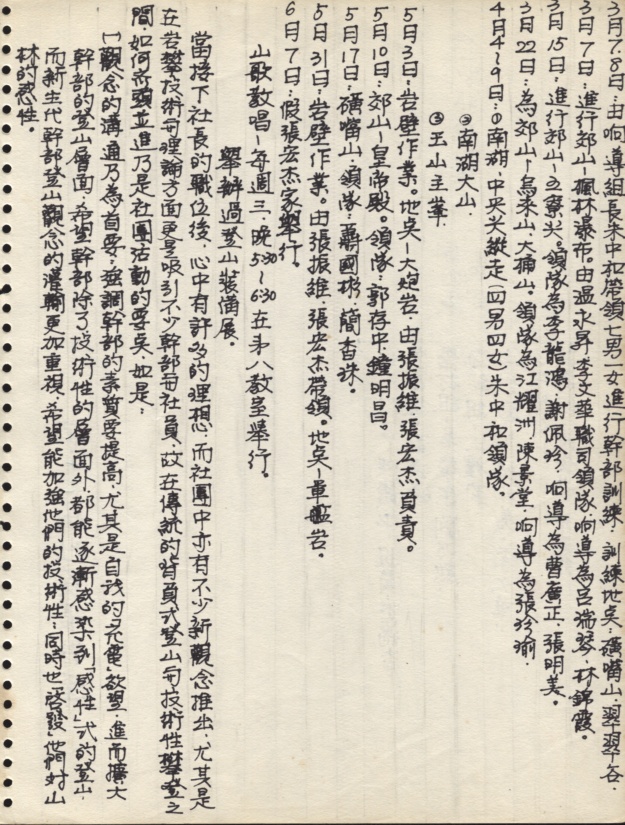 3月7.8日:由嚮導組長朱中和帶領七男一女進行幹部訓練.訓練地點:磺嘴山.翠翠谷.
3月7日:進行郊山-楓林瀑布.由溫永昇.李文華職司領隊.嚮導為呂瑞琴.林錦霞。
3月15日:進行郊山-五寮尖。領隊為李龍鴻.謝佩珍.嚮導為曹廣正.張明美。
3月22日:為郊山-烏來山.大桶山。領隊為江耀洲.陳景堂.嚮導為張珍瑜.
4月4~9日:①南湖.中央尖縱走(四男四女)朱中和領隊。
②南湖大山.
③玉山主峯.
5月3日:岩壁作業。地點-大炮岩.由張振維.張宏杰負責。
5月10日:郊山-皇帝殿。領隊:郭存中.鐘明昌。
5月17日:磺嘴山.領隊:蔣國彬.簡香珠.
5月31日:岩壁作業。由張振維.張宏杰帶領。地點-軍艦岩。
6月7日:假張宏杰家舉行。
山歌教唱-每週三.晚5:30~6:30在第八教室舉行。
舉辦過登山裝備展。
當接下社長的職位後,心中有許多的理想,而社團中亦有不少新觀念推出.尤其是
在岩攀技術與理論方面更是吸引不少幹部與社員.故在傳統的背負式登山與技術性攀登之
間,如何齊頭並進乃是社團活動的要點.如是:
(一)觀念的溝通乃為首要:強調幹部的素質要提高,尤其是自我的充實慾望.進而擴大
幹部的登山層面.希望幹部除了技術性的層面外.都能逐漸感染到「感性」式的登山.
而新生代幹部登山觀念的灌輸更加重視.希望能加強他們的技術性;同時也啓發他們對山
林的感性。